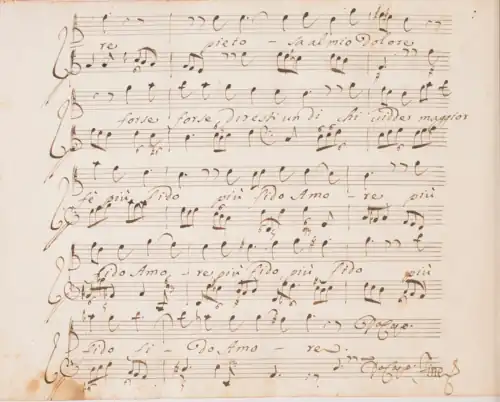 re pieto - sa al mio Dolore
forse forse diresti un di chi vidde maggior
fè più fido più fido Amo - re più
fido Amo - re più fido più fido più
fido fi - do Amo - re Da Capo
Da Capo